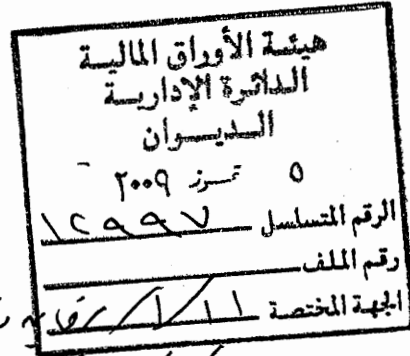 هيئة الأوراق المالية
الدائرة الإدارية
الديوان
٥ تموز ٢٠٠٩
الرقم المتسلسل ١٢٩٩٧
رقم الملف
الجهة المختصة ١١/١/